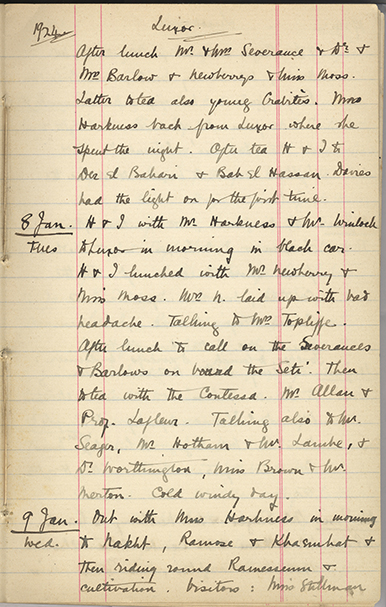 1924 Luxor.
After lunch Mr. & Mrs Severance & Dr. &
Mrs Barlow & Newberrys & Miss Moss.
Latter to tea also young Crabitès. Mrs
Harkness back from Luxor where she
spent the night. After tea H & I to
Der el Bahari & Bab el Hassan. Davies
had the light on for the first time.
8 Jan. H & I with Mrs Harkness & Mr. Winlock
Tues to Luxor in morning in black car.
H & I lunched with Mr Newberry &
Miss Moss. Mrs N. laid up with bad
headache. Talking to Mrs Topliffe.
After lunch to call on the Severances
& Barlows on board the Seti. Then
to tea with the Contessa. Mr. Allan &
Prof. Lafleur. Talking also to Mr.
Seager, Mr Hotham & Mr. &
Dr. Worthington, Miss Brown & Mr.
Merton. Cold windy day.
9 Jan. Out with Mrs Harkness in morning
Wed. to Nakht, Ramose & Khaemhat &
then riding round Ramesseum &
cultivation. Visitors: Miss Stillman